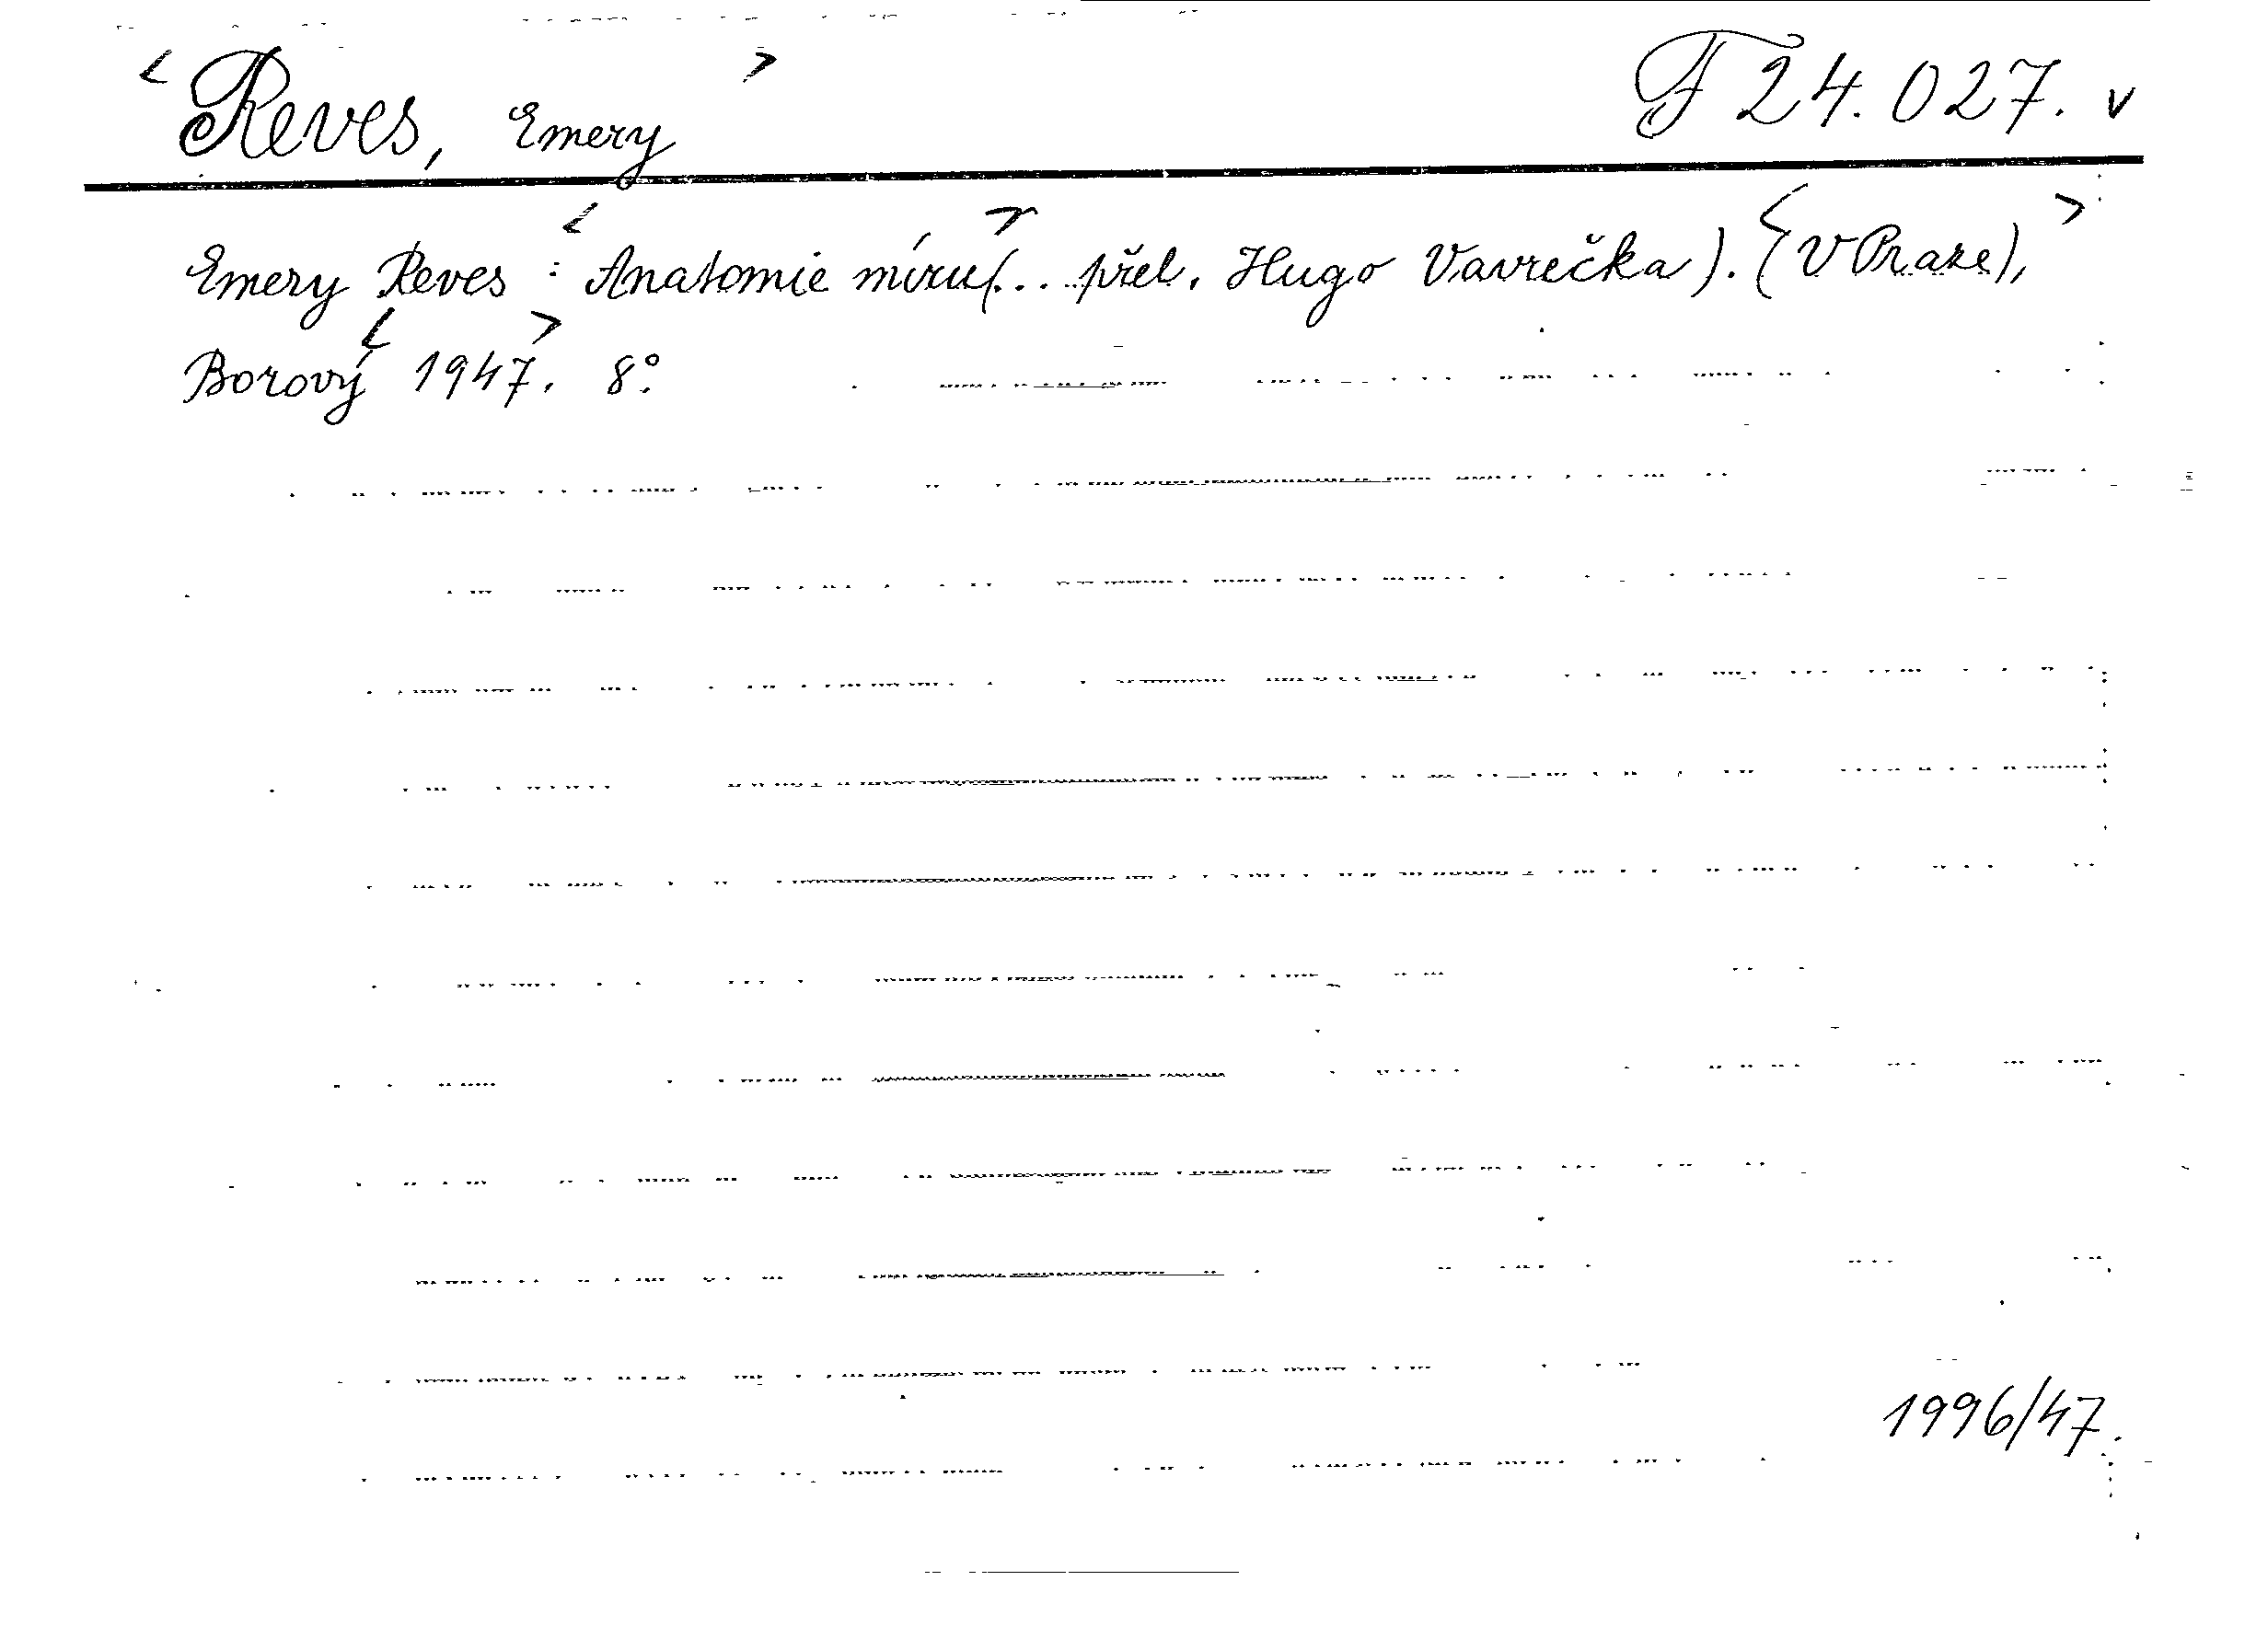 < Reves, Emery > F 24.027. v
Emery Reves : < Anatomie míru > (... přel. Hugo Vavrečka). < (V Praze), >
Borový < 1947. > 8°.
1996/47.